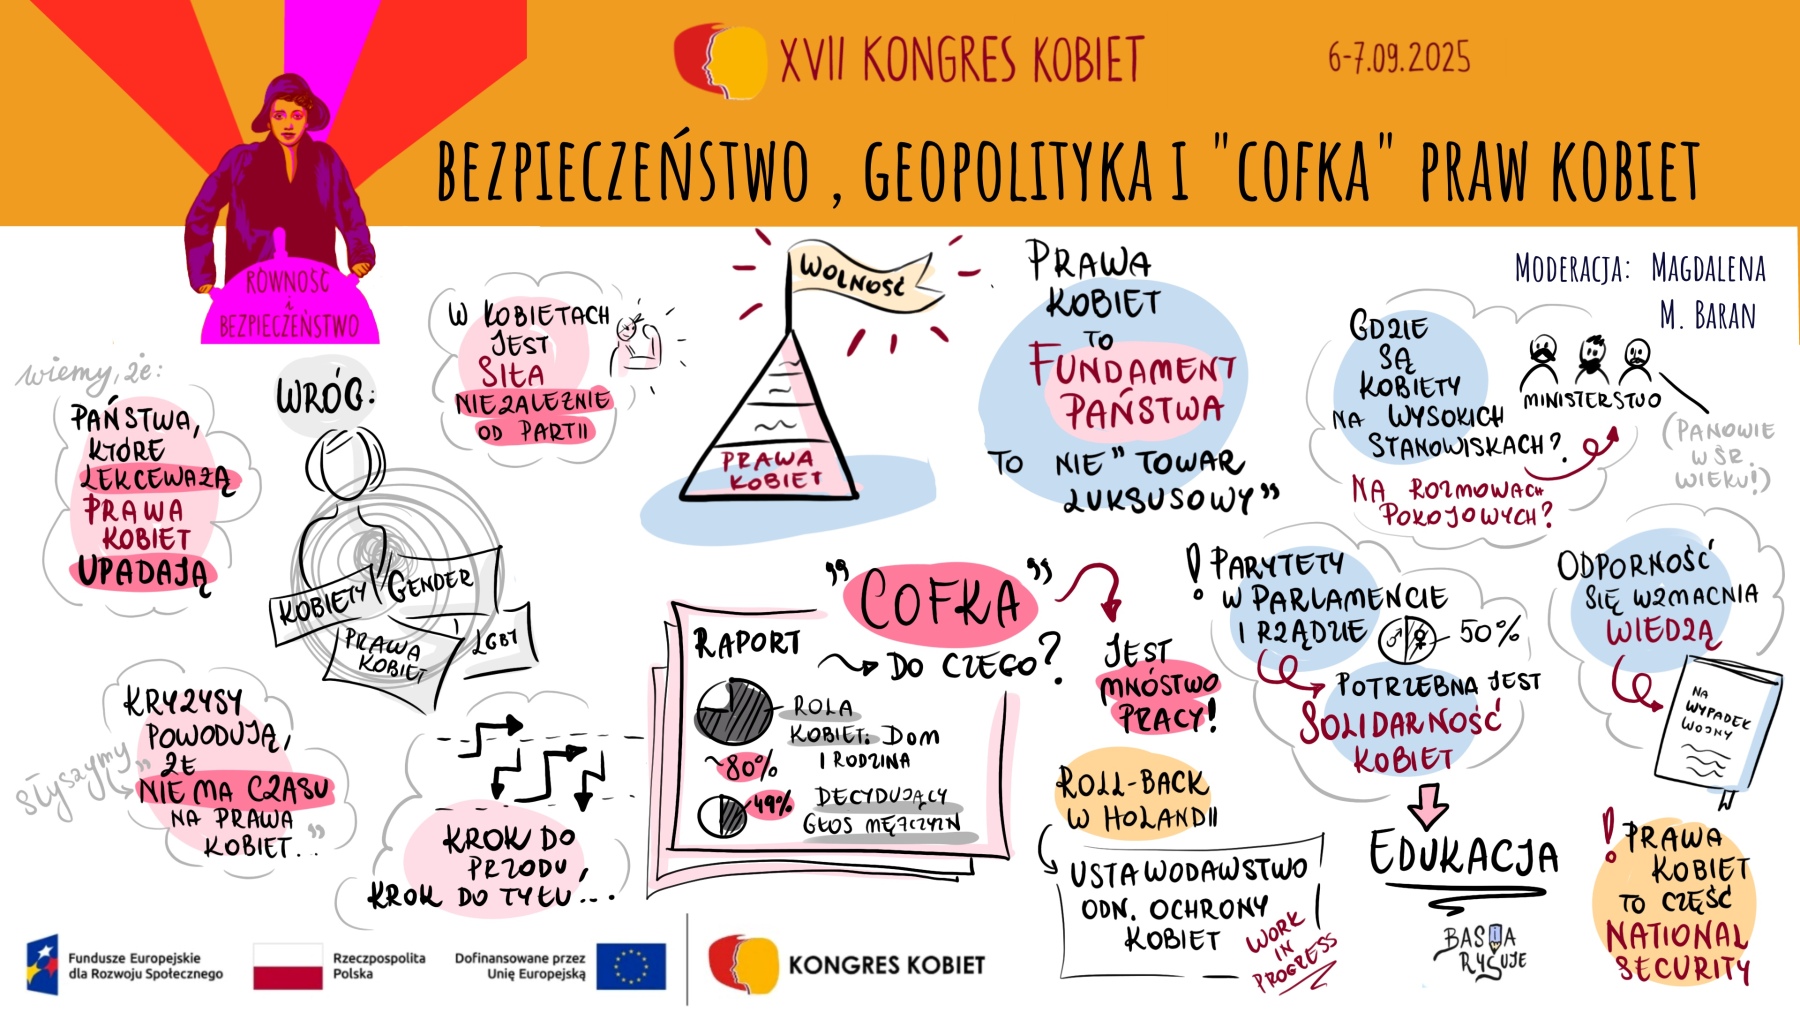 XVII KONGRES KOBIET
6-7.09.2025
BEZPIECZEŃSTWO, GEOPOLITYKA I "COFKA" PRAW KOBIET
RÓWNOŚĆ
i
BEZPIECZEŃSTWO
MODERACJA: MAGDALENA
M. BARAN
wiemy, że:
PAŃSTWA,
KTÓRE
LEKCEWAŻĄ
PRAWA
KOBIET
UPADAJĄ
WRÓG:
KOBIETY
GENDER
PRAWA
KOBIET
LGBT
W KOBIETACH
JEST
SIŁA
NIEZALEŻNIE
OD PARTII
WOLNOŚĆ
PRAWA
KOBIET
PRAWA
KOBIET
TO
FUNDAMENT
PAŃSTWA
TO NIE "TOWAR
LUKSUSOWY"
GDZIE
SĄ
KOBIETY
NA WYSOKICH
STANOWISKACH?
NA ROZMOWACH
POKOJOWYCH?
MINISTERSTWO
(PANOWIE
W ŚR.
WIEKU!)
słyszymy
"KRYZYSY
POWODUJĄ,
ŻE
NIE MA CZASU
NA PRAWA
KOBIET..."
KROK DO
PRZODU,
KROK DO TYŁU...
"COFKA"
DO CZEGO?
RAPORT
ROLA
KOBIET: DOM
I RODZINA
~80%
49%
DECYDUJĄCY
GŁOS MĘŻCZYZN
JEST
MNÓSTWO
PRACY!
ROLL-BACK
W HOLANDII
USTAWODAWSTWO
ODN. OCHRONY
KOBIET
WORK
IN
PROGRESS
! PARYTETY
W PARLAMENCIE
I RZĄDZIE
50%
POTRZEBNA JEST
SOLIDARNOŚĆ
KOBIET
EDUKACJA
ODPORNOŚĆ
SIĘ WZMACNIA
WIEDZĄ
NA
WYPADEK
WOJNY
! PRAWA
KOBIET
TO CZĘŚĆ
NATIONAL
SECURITY
BASIA
RYSUJE
Fundusze Europejskie
dla Rozwoju Społecznego
Rzeczpospolita
Polska
Dofinansowane przez
Unię Europejską
KONGRES KOBIET